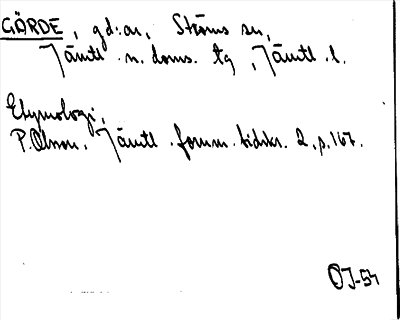 GÄRDE, gd:ar, Ströms sn,
Jämtl. n. doms. tg, Jämtl. l.
Etymologi,
P. Olsson, Jämtl. fornm. tidskr. 2, p. 167.
OJ-54